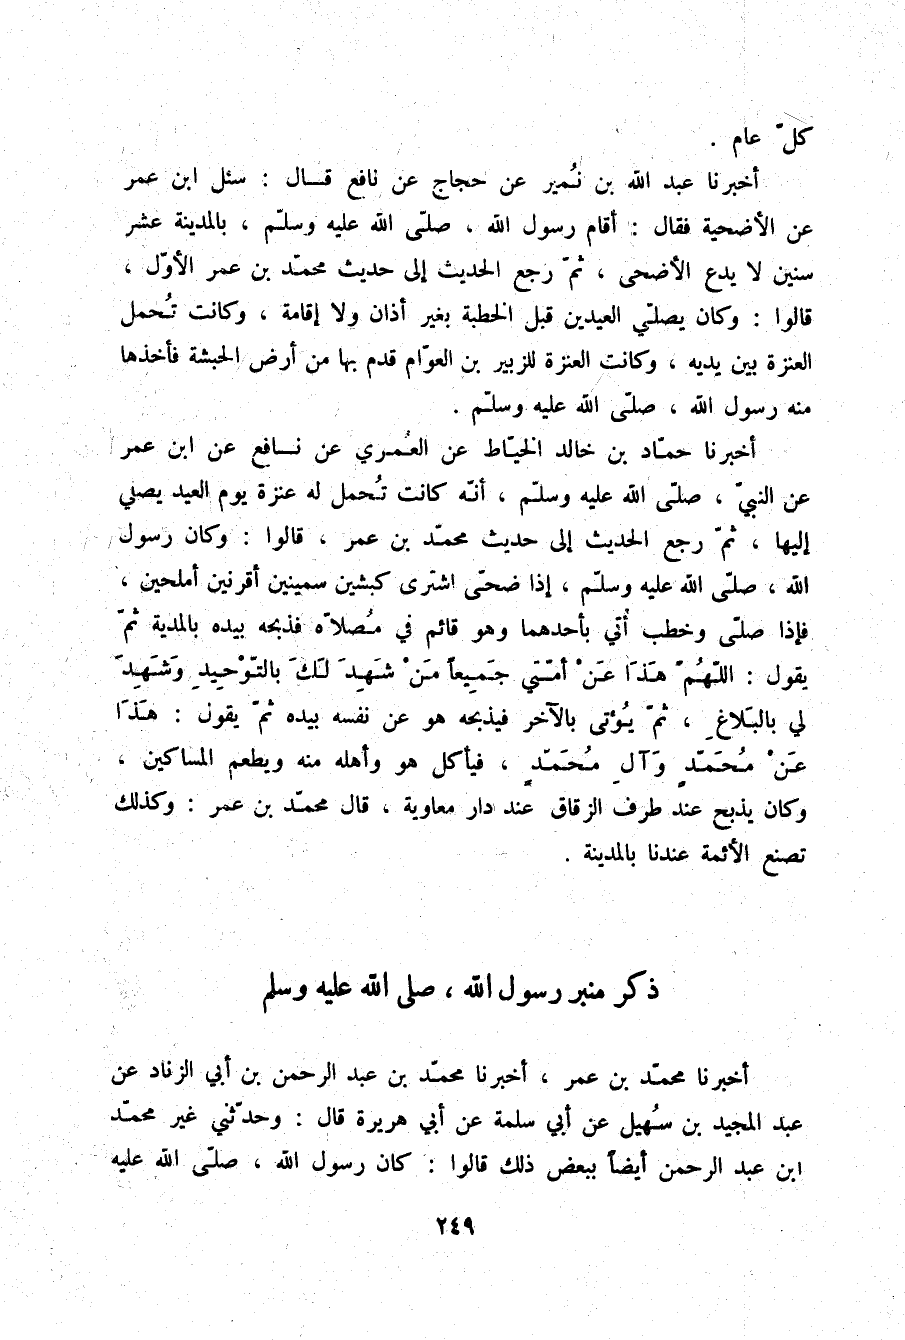 كلّ عام .
أخبرنا عبد الله بن نُمير عن حجاج عن نافع قــال : سئل ابن عمر
عن الأضحية فقال : أقام رسول الله ، صلّى الله عليه وسلّم ، بالمدينة عشر
سنين لا يدع الأضحى ، ثمّ رجع الحديث إلى حديث محمّد بن عمر الأوّل ،
قالوا : وكان يصلّي العيدين قبل الخطبة بغير أذان ولا إقامة ، وكانت تُحمل
العنزة بين يديه ، وكانت العنزة للزبير بن العوّام قدم بها من أرض الحبشة فأخذها
منه رسول الله ، صلّى الله عليه وسلّم .
أخبرنا حمّاد بن خالد الخيّاط عن العُمري عن نــافع عن ابن عمر
عن النبيّ ، صلّى الله عليه وسلّم ، أنّه كانت تُحمل له عنزة يوم العيد يصلي
إليها ، ثمّ رجع الحديث إلى حديث محمّد بن عمر ، قالوا : وكان رسول
الله ، صلّى الله عليه وسلّم ، إذا ضحّى اشترى كبشين سمينين أقرنين أملحين ،
فإذا صلّى وخطب أُتي بأحدهما وهو قائم في مُصلاّه فذبحه بيده بالمدية ثمّ
يقول : اللّهُمّ هَذَا عَنْ أمّتي جَمِيعاً مَنْ شَهِدَ لَكَ بالتّوْحِيدِ وَشَهِدَ
لي بالبَلاغِ ، ثمّ يُؤتى بالآخر فيذبحه هو عن نفسه بيده ثمّ يقول : هَذَا
عَنْ مُحَمّدٍ وَآلِ مُحَمّدٍ ، فيأكل هو وأهله منه ويطعم المساكين ،
وكان يذبح عند طرف الزقاق عند دار معاوية ، قال محمّد بن عمر : وكذلك
تصنع الأئمة عندنا بالمدينة .
ذكر منبر رسول الله ، صلى الله عليه وسلم
أخبرنا محمّد بن عمر ، أخبرنا محمّد بن عبد الرحمن بن أبي الزناد عن
عبد المجيد بن سُهيل عن أبي سلمة عن أبي هريرة قال : وحدّثني غير محمّد
ابن عبد الرحمن أيضاً ببعض ذلك قالوا : كان رسول الله ، صلّى الله عليه
٢٤٩